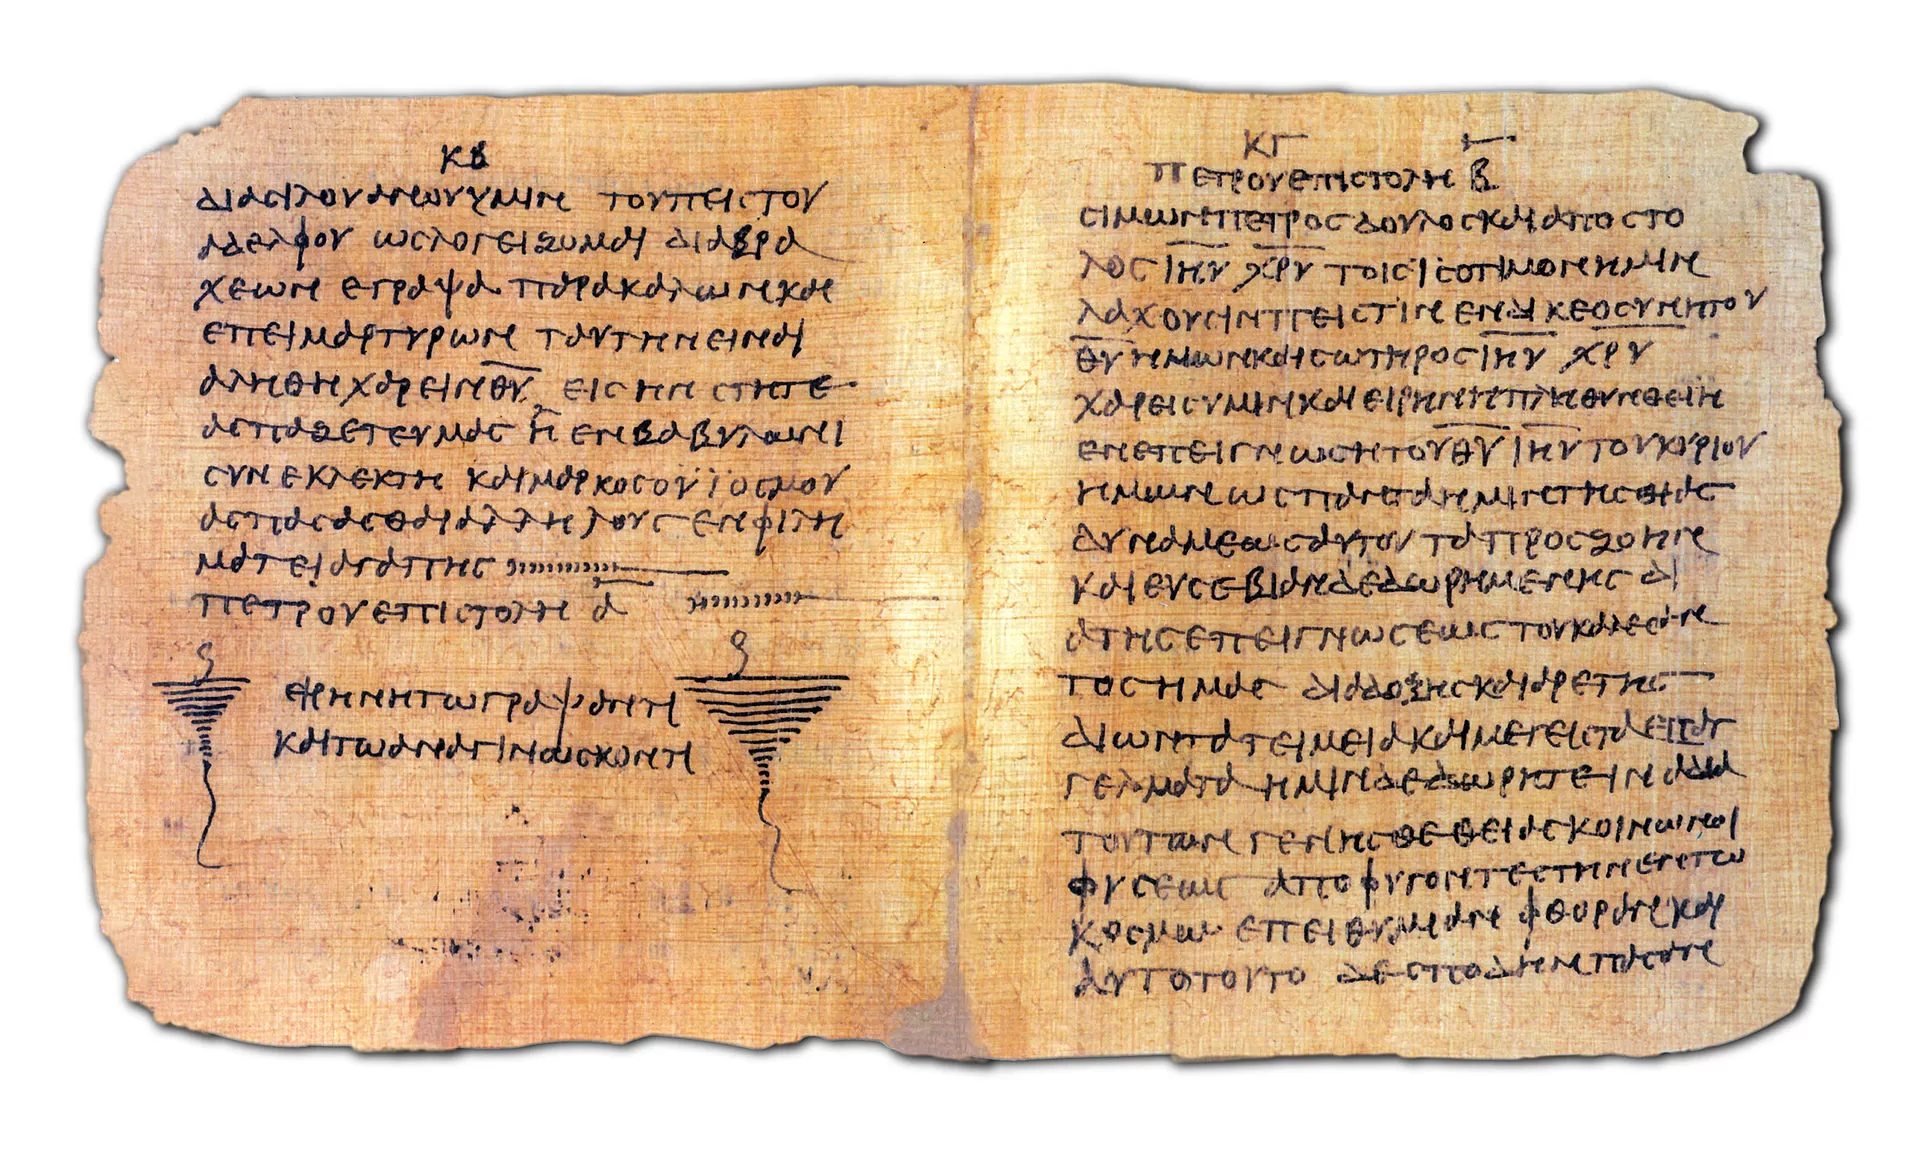 ΚΒ
ΔΙΑ ΣΙΛΟΥΑΝΟΥ ΥΜΙΝ ΤΟΥ ΠΕΙΣΤΟΥ
ΑΔΕΛΦΟΥ ΩΣ ΛΟΓΕΙΖΟΜΑΙ ΔΙΑ ΒΡΑ
ΧΕΩΝ ΕΓΡΑΨΑ ΠΑΡΑΚΑΛΩΝ ΚΑΙ
ΕΠΕΙΜΑΡΤΥΡΩΝ ΤΑΥΤΗΝ ΕΙΝΑΙ
ΑΛΗΘΗ ΧΑΡΕΙΝ ΘΥ ΕΙΣ ΗΝ ΣΤΗΤΕ
ΑΣΠΑΖΕΤΕ ΥΜΑΣ Η ΕΝ ΒΑΒΥΛΩΝΙ
ΣΥΝΕΚΛΕΚΤΗ ΚΑΙ ΜΑΡΚΟΣ Ο ΥΪΟΣ ΜΟΥ
ΑΣΠΑΣΑΣΘΑΙ ΑΛΛΗΛΟΥΣ ΕΝ ΦΙΛΗ
ΜΑΤΕΙ ΑΓΑΠΗΣ
ΠΕΤΡΟΥ ΕΠΙΣΤΟΛΗ Α
ΕΙΡΗΝΗ ΤΩ ΓΡΑΨΑΝΤΙ
ΚΑΙ ΤΩ ΑΝΑΓΙΝΩΣΚΟΝΤΙ
ΚΓ
ΠΕΤΡΟΥ ΕΠΙΣΤΟΛΗ Β
ΣΙΜΩΝ ΠΕΤΡΟΣ ΔΟΥΛΟΣ ΚΑΙ ΑΠΟΣΤΟ
ΛΟΣ ΙΗΥ ΧΡΥ ΤΟΙΣ ΙΣΟΤΙΜΟΝ ΗΜΙΝ
ΛΑΧΟΥΣΙΝ ΠΕΙΣΤΙΝ ΕΝ ΔΙΚΕΟΣΥΝΗ ΤΟΥ
ΘΥ ΗΜΩΝ ΚΑΙ ΣΩΤΗΡΟΣ ΙΗΥ ΧΡΥ
ΧΑΡΕΙΣ ΥΜΙΝ ΚΑΙ ΕΙΡΗΝΗ ΠΛΗΘΥΝΘΕΙΗ
ΕΝ ΕΠΕΙΓΝΩΣΗ ΤΟΥ ΘΥ ΙΗΥ ΤΟΥ ΚΥΡΙΟΥ
ΗΜΩΝ ΩΣ ΠΑΝΤΑ ΗΜΙΝ ΤΗΣ ΘΙΑΣ
ΔΥΝΑΜΕΩΣ ΑΥΤΟΥ ΤΑ ΠΡΟΣ ΖΟΗΝ
ΚΑΙ ΕΥΣΕΒΙΑΝ ΔΕΔΩΡΗΜΕΝΗΣ ΔΙ
Α ΤΗΣ ΕΠΕΙΓΝΩΣΕΩΣ ΤΟΥ ΚΑΛΕΣΑΝ
ΤΟΣ ΗΜΑΣ ΔΙΑ ΔΟΞΗΣ ΚΑΙ ΑΡΕΤΗΣ
ΔΙ ΩΝ ΤΑ ΤΕΙΜΕΙΑ ΚΑΙ ΜΕΓΕΙΣΤΑ ΕΠΑΓ
ΓΕΛΜΑΤΑ ΗΜΙΝ ΔΕΔΩΡΗΤΕ ΙΝΑ ΔΙΑ
ΤΟΥΤΩΝ ΓΕΝΗΣΘΕ ΘΕΙΑΣ ΚΟΙΝΩΝΟΙ
ΦΥΣΕΩΣ ΑΠΟΦΥΓΟΝΤΕΣ ΤΗΝ ΕΝ ΤΩ
ΚΟΣΜΩ ΕΠΕΙΘΥΜΙΑΝ ΦΘΟΡΑΝ ΚΑΙ
ΑΥΤΟ ΤΟΥΤΟ ΔΕ ΣΠΟΔΗΝ ΠΑΣΑΝ